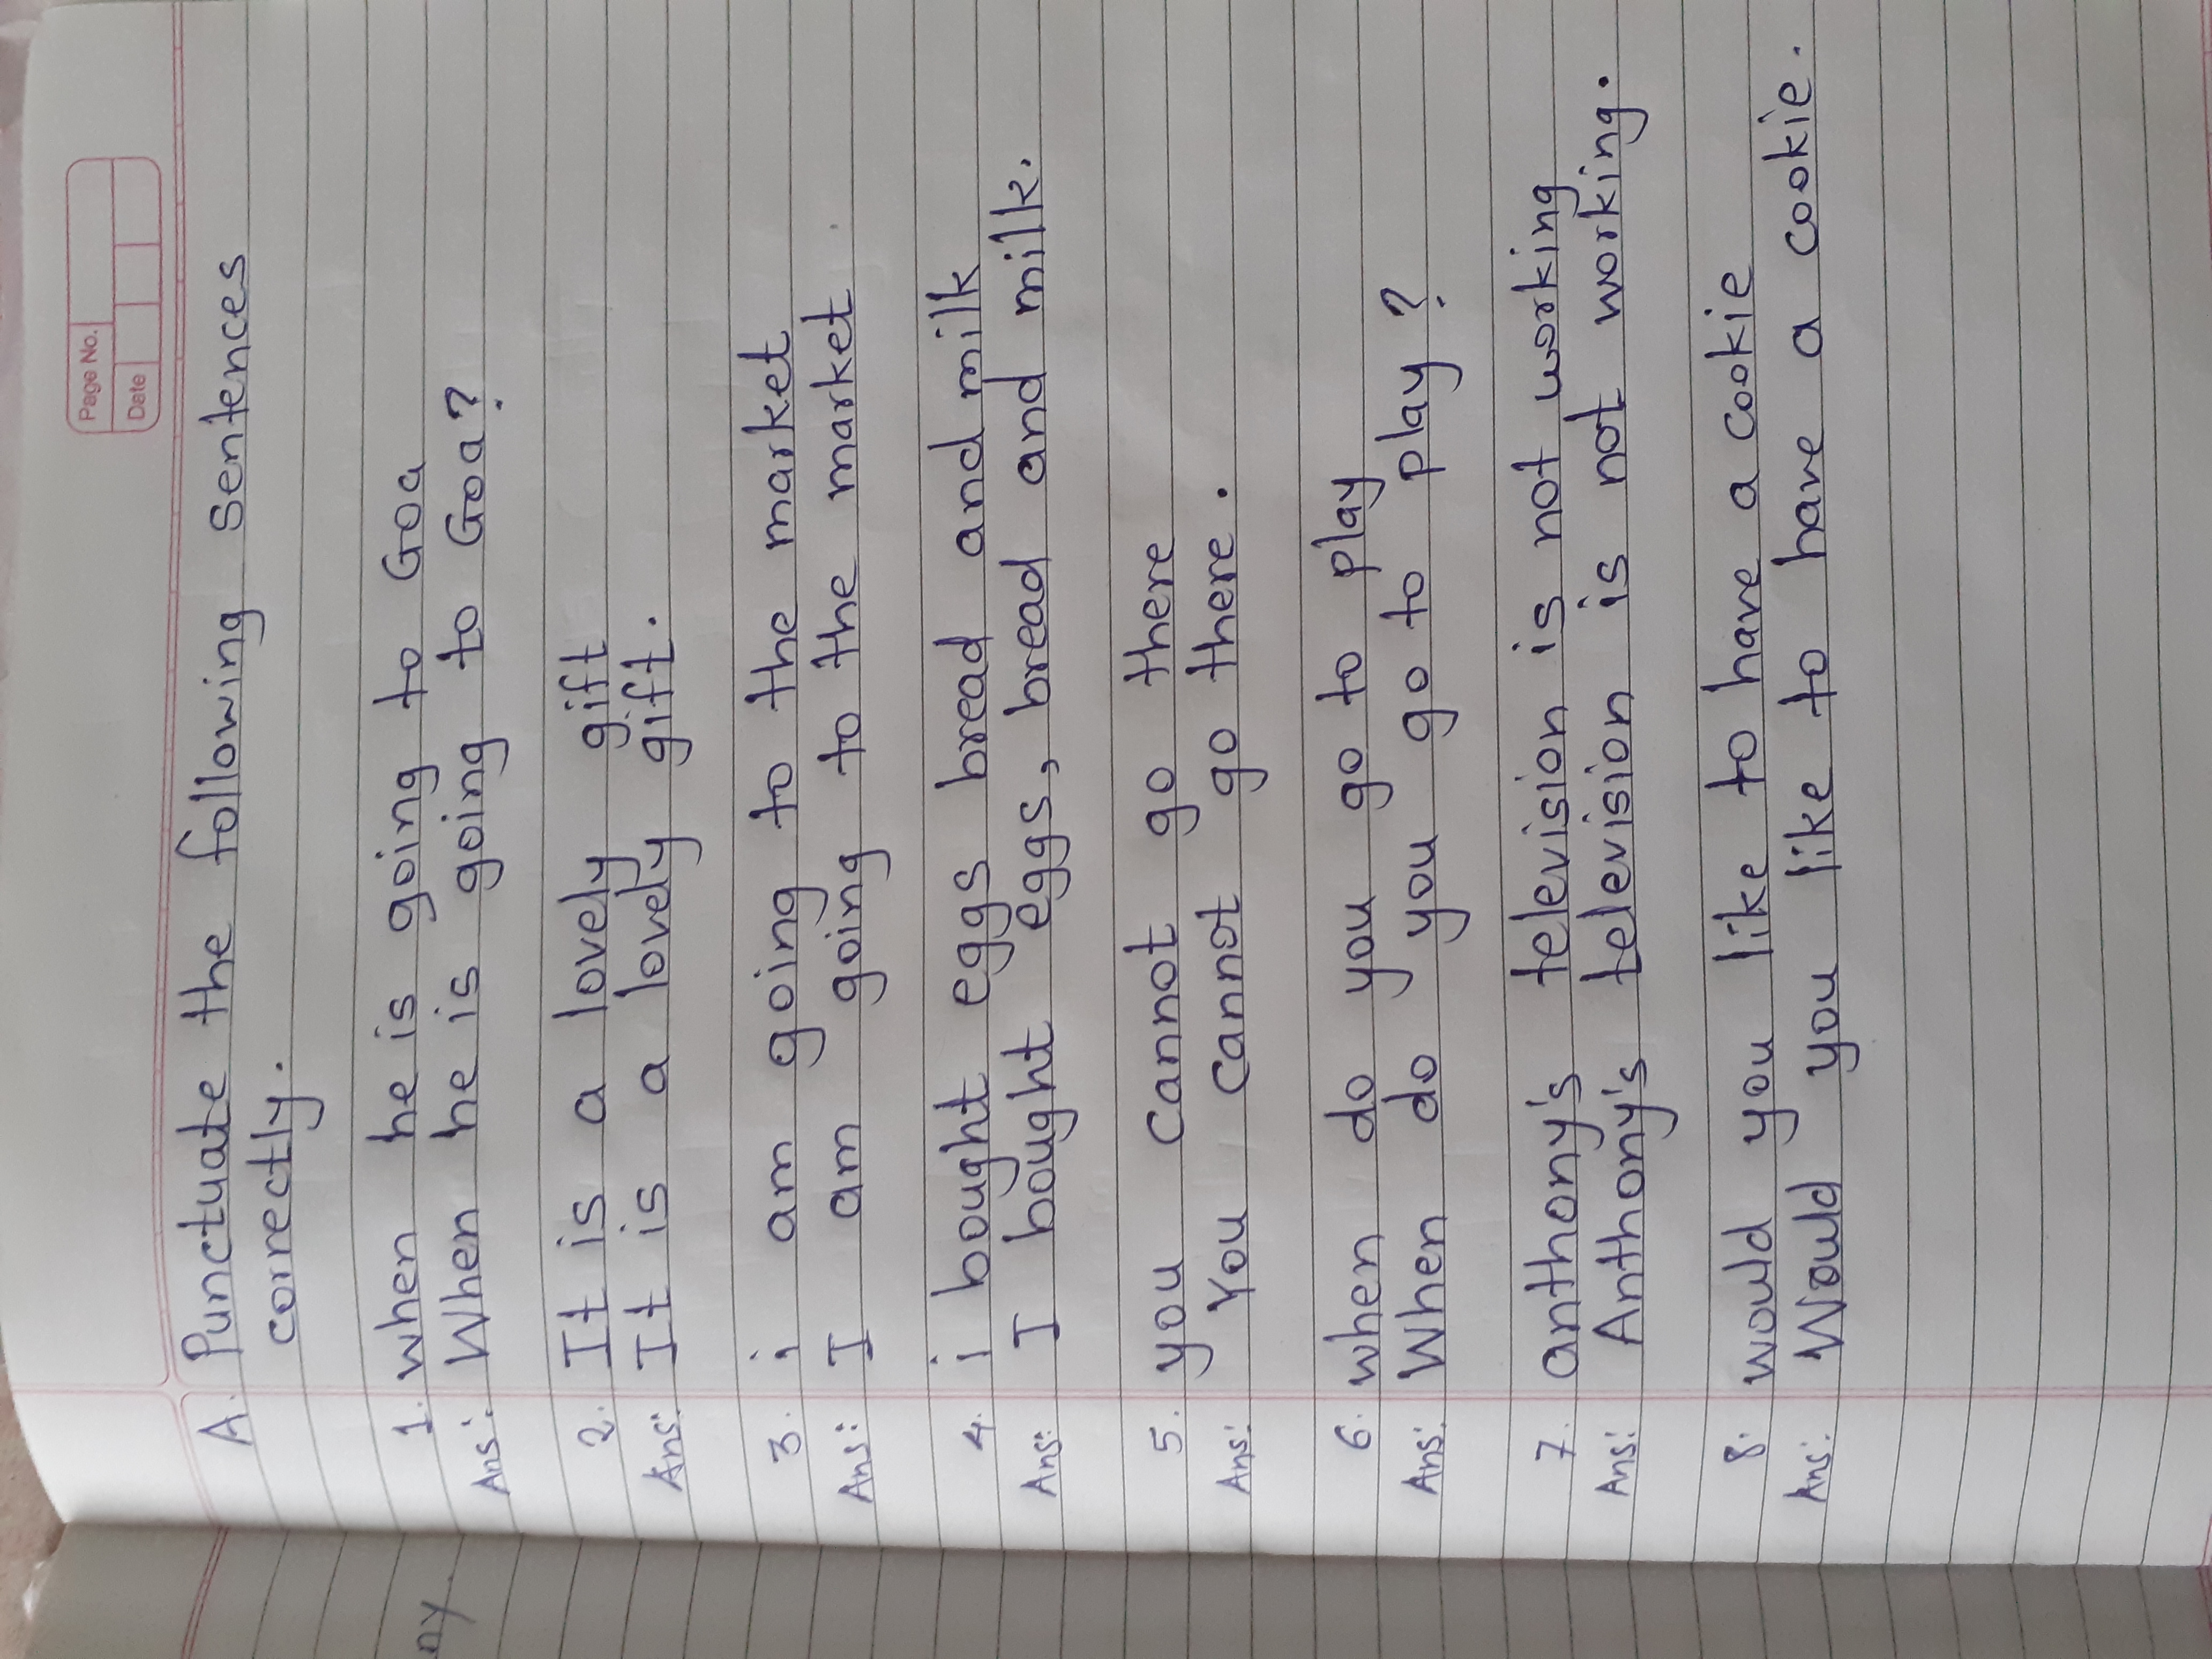 Page No.
Date
A. Punctuate the following sentences
correctly.
1. when he is going to Goa
Ans: When he is going to Goa?
2. It is a lovely gift
Ans: It is a lovely gift.
3. i am going to the market
Ans: I am going to the market.
4. i bought eggs bread and milk
Ans: I bought eggs, bread and milk.
5. you cannot go there
Ans: You cannot go there.
6. when do you go to play
Ans: When do you go to play?
7. anthony's television is not working
Ans: Anthony's television is not working.
8. would you like to have a cookie
Ans: Would you like to have a cookie.
ny